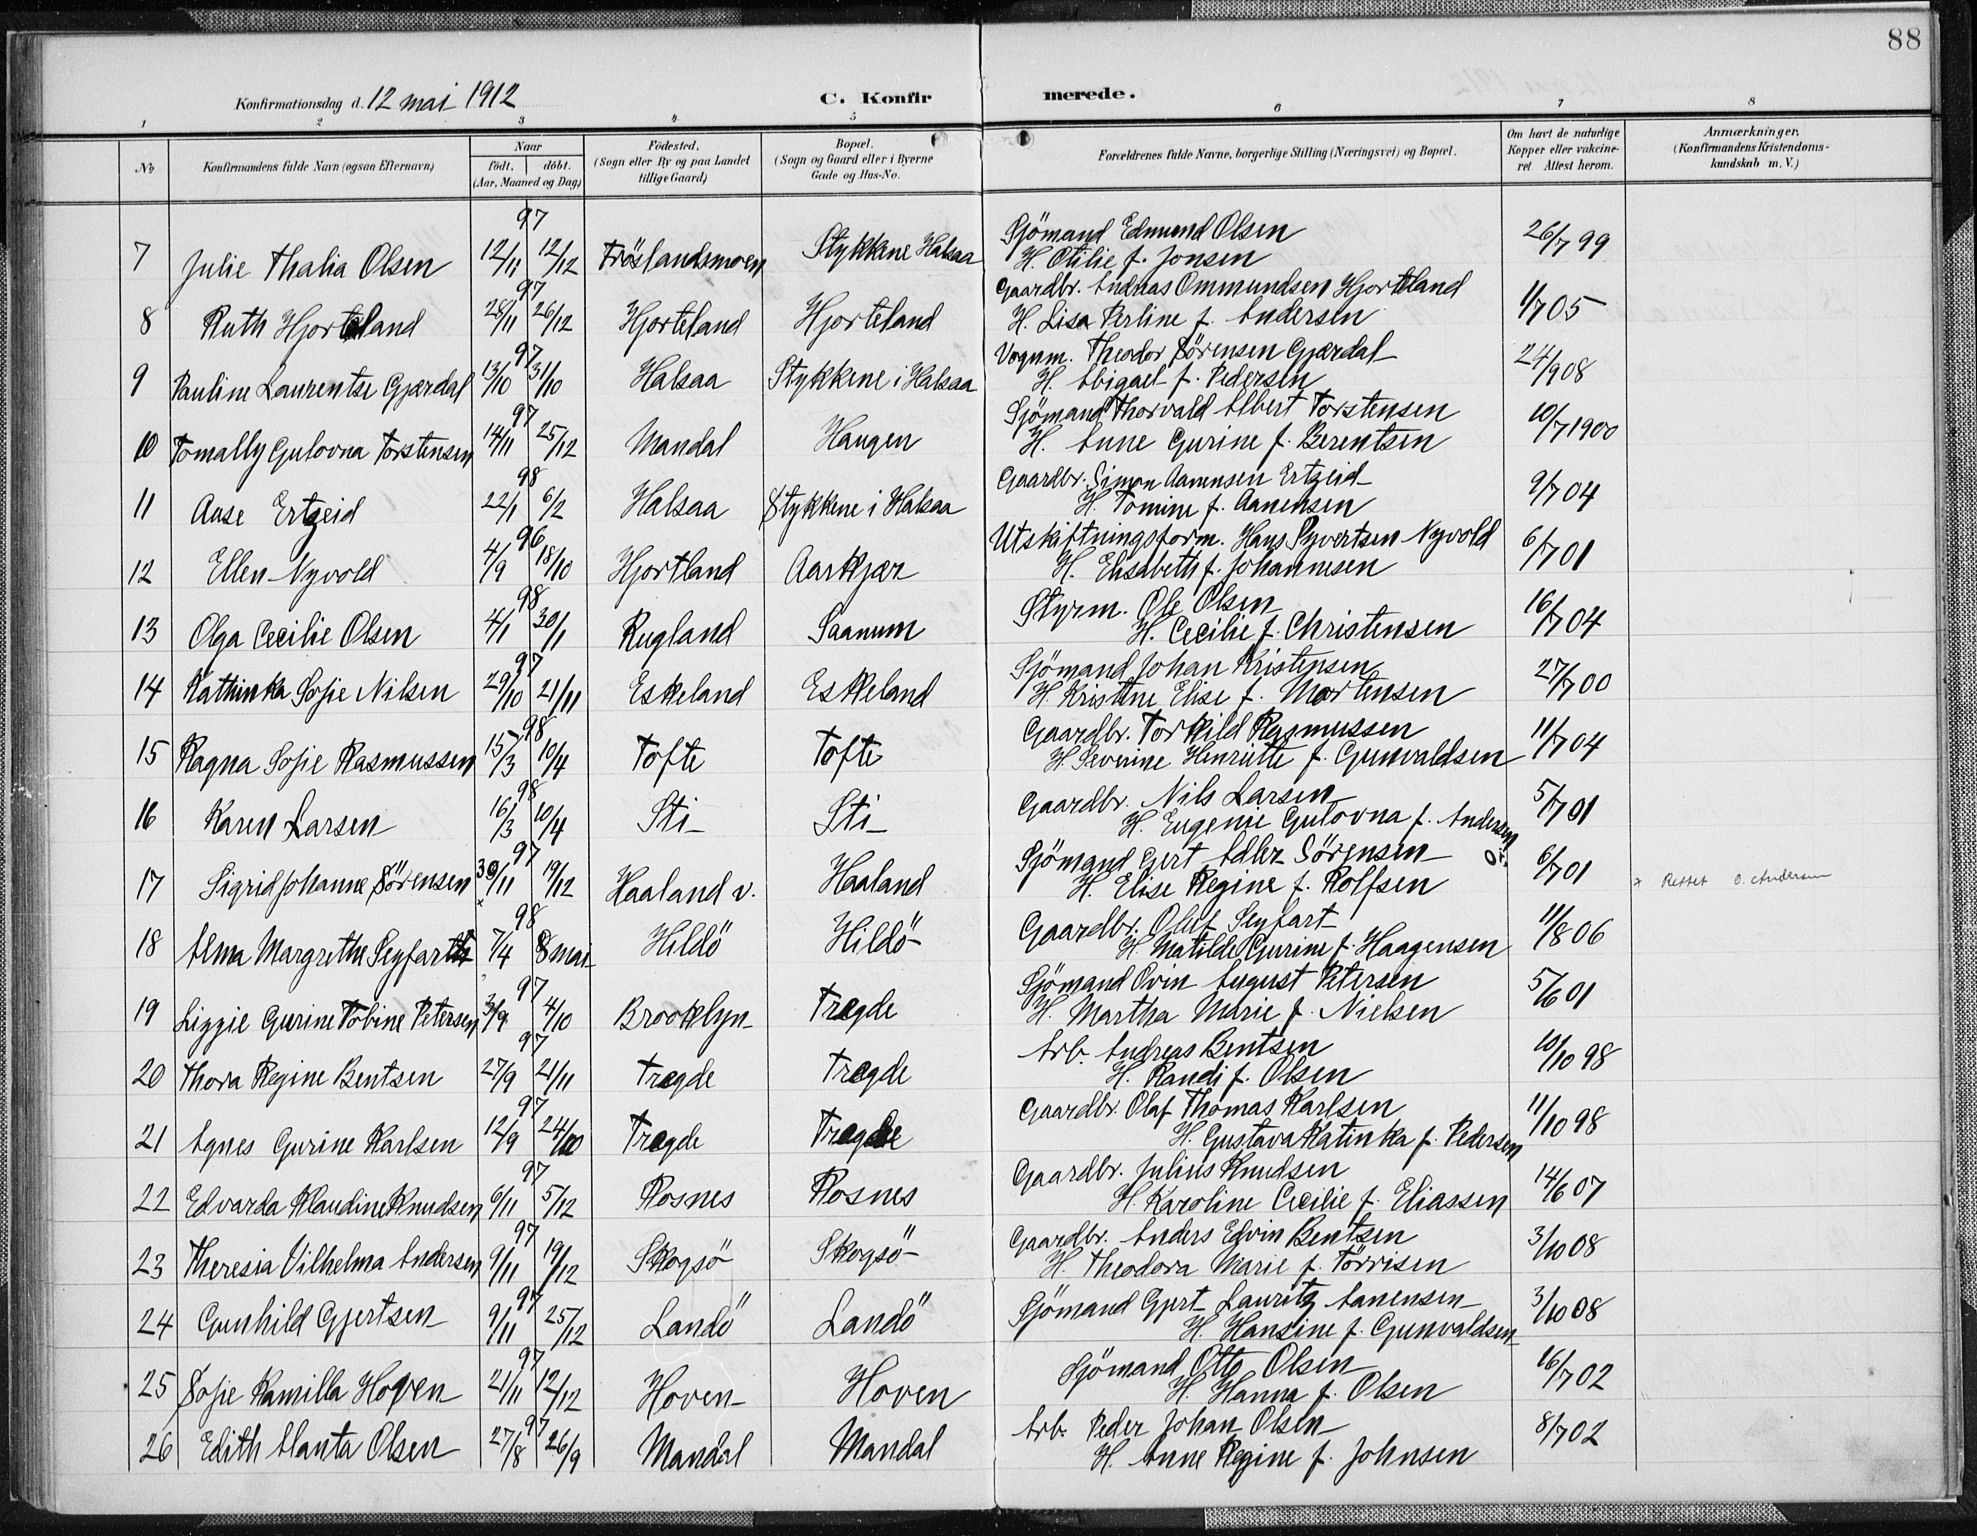 88
Konfirmationsdag d. 12 mai 1912 C. Konfirmerede.
1 2 3 4 5 6 7 8
No Konfirmandens fulde Navn (ogsaa Efternavn) Naar født. døbt. (Aar, Maaned og Dag) Födested. (Sogn eller By og paa Landet tillige Gaard) Bopæl. (Sogn og Gaard eller i Byerne Gade og Hus-No. Forældrenes fulde Navne, borgerlige Stilling (Næringsvei) og Bopæl. Om havt de naturlige Kopper eller vakcineret Attest herom. Anmærkninger. (Konfirmandens Kristendomskundskab m. V.)
97 Sjömand Edmund Olsen
7 Julie Thalia Olsen 12/11 12/12 Tröslandsmoen Stykkene Halsaa H. Otilie f. Jonsen 26/7 99
97 Gaardbr. Andreas Ommundsen Hjorteland
8 Ruth Hjorteland 28/11 26/12 Hjorteland Hjorteland H. Lisa Perline f. Andersen 1/7 05
97 Vognm. Theodor Sörensen Gjærdal
9 Pauline Laurentse Gjærdal 13/10 31/10 Halsaa Stykkene i Halsaa H. Abigael f. Pedersen 24/9 08
97 Sjömand Thorvald Albert Torstensen
10 Tomally Gulovna Torstensen 14/11 25/12 Mandal Haugen H. Anne Gurine f. Berentsen 10/7 1900
98 Gaardbr. Simon Aanensen Ertzeid
11 Aase Ertzeid 22/1 6/2 Halsaa Stykkene i Halsaa H. Tomine f. Aanensen 9/7 04
96 Utskiftningsform. Hans Syvertsen Nyvold
12 Ellen Nyvold 4/9 18/10 Hjortland Aarkjær H. Elisabeth f. Johannesen 6/7 01
98 Styrm. Ole Olsen
13 Olga Cecilie Olsen 4/1 30/1 Rugland Saanum H. Cecilie f. Christensen 16/7 04
97 Sjömand Johan Kristensen
14 Kathinka Sofie Nilsen 29/10 21/11 Eskeland Eskeland H. Kristine Elise f. Mortensen 27/7 00
98 Gaardbr. Torkild Rasmussen
15 Ragna Sofie Rasmussen 15/3 10/4 Tofte Tofte H. Severine Henriette f. Gunvaldsen 11/7 04
98 Gaardbr. Nils Larsen
16 Karen Larsen 16/3 10/4 Sti Sti H. Eugenie Gulovna f. Andersen 5/7 01
97 Sjömand Gert Adler Sörensen
17 Sigrid Johanne Sörensen 30/11 19/12 Haaland v. Haaland H. Elise Regine f. Rolfsen 6/7 01 x Rettet O. Andersen
98 Gaardbr. Oluf Seyfart
18 Alma Margrethe Seyfarth 7/4 8 mai Hildö Hildö H. Matilde Gurine f. Haagensen 11/8 06
97 Sjömand Ovin August Petersen
19 Lizzie Gurine Tobine Petersen 3/9 4/10 Brooklyn Tregde H. Martha Marie f. Nielsen 5/6 01
97 Arb. Andreas Bentsen
20 Thora Regine Bentsen 27/9 21/11 Tregde Tregde H. Randi f. Olsen 10/10 98
97 Gaardbr. Olaf Thomas Karlsen
21 Agnes Gurine Karlsen 12/9 24/10 Tregde Tregde H. Gustava Katinka f. Pedersen 11/10 98
97 Gaardbr. Julius Knudsen
22 Edvarda Klaudine Knudsen 6/11 5/12 Rosnes Rosnes H. Karoline Cecilie f. Eliassen 14/6 07
97 Gaardbr. Anders Edvin Bentsen
23 Theresia Vilhelma Andersen 9/11 19/12 Skogsö Skogsö H. Theodora Marie f. Törrisen 3/10 08
97 Sjömand Gjert Lauritz Aanensen
24 Gunhild Gjertsen 9/11 25/12 Landö Landö H. Hansine f. Gunvaldsen 3/10 08
97 Sjömand Otto Olsen
25 Sofie Kamilla Hoven 21/11 12/12 Hoven Hoven H. Hanna f. Olsen 16/7 02
97 Arb. Peder Johan Olsen
26 Edith Alanta Olsen 27/8 26/9 Mandal Mandal H. Anne Regine f. Johnsen 8/7 02